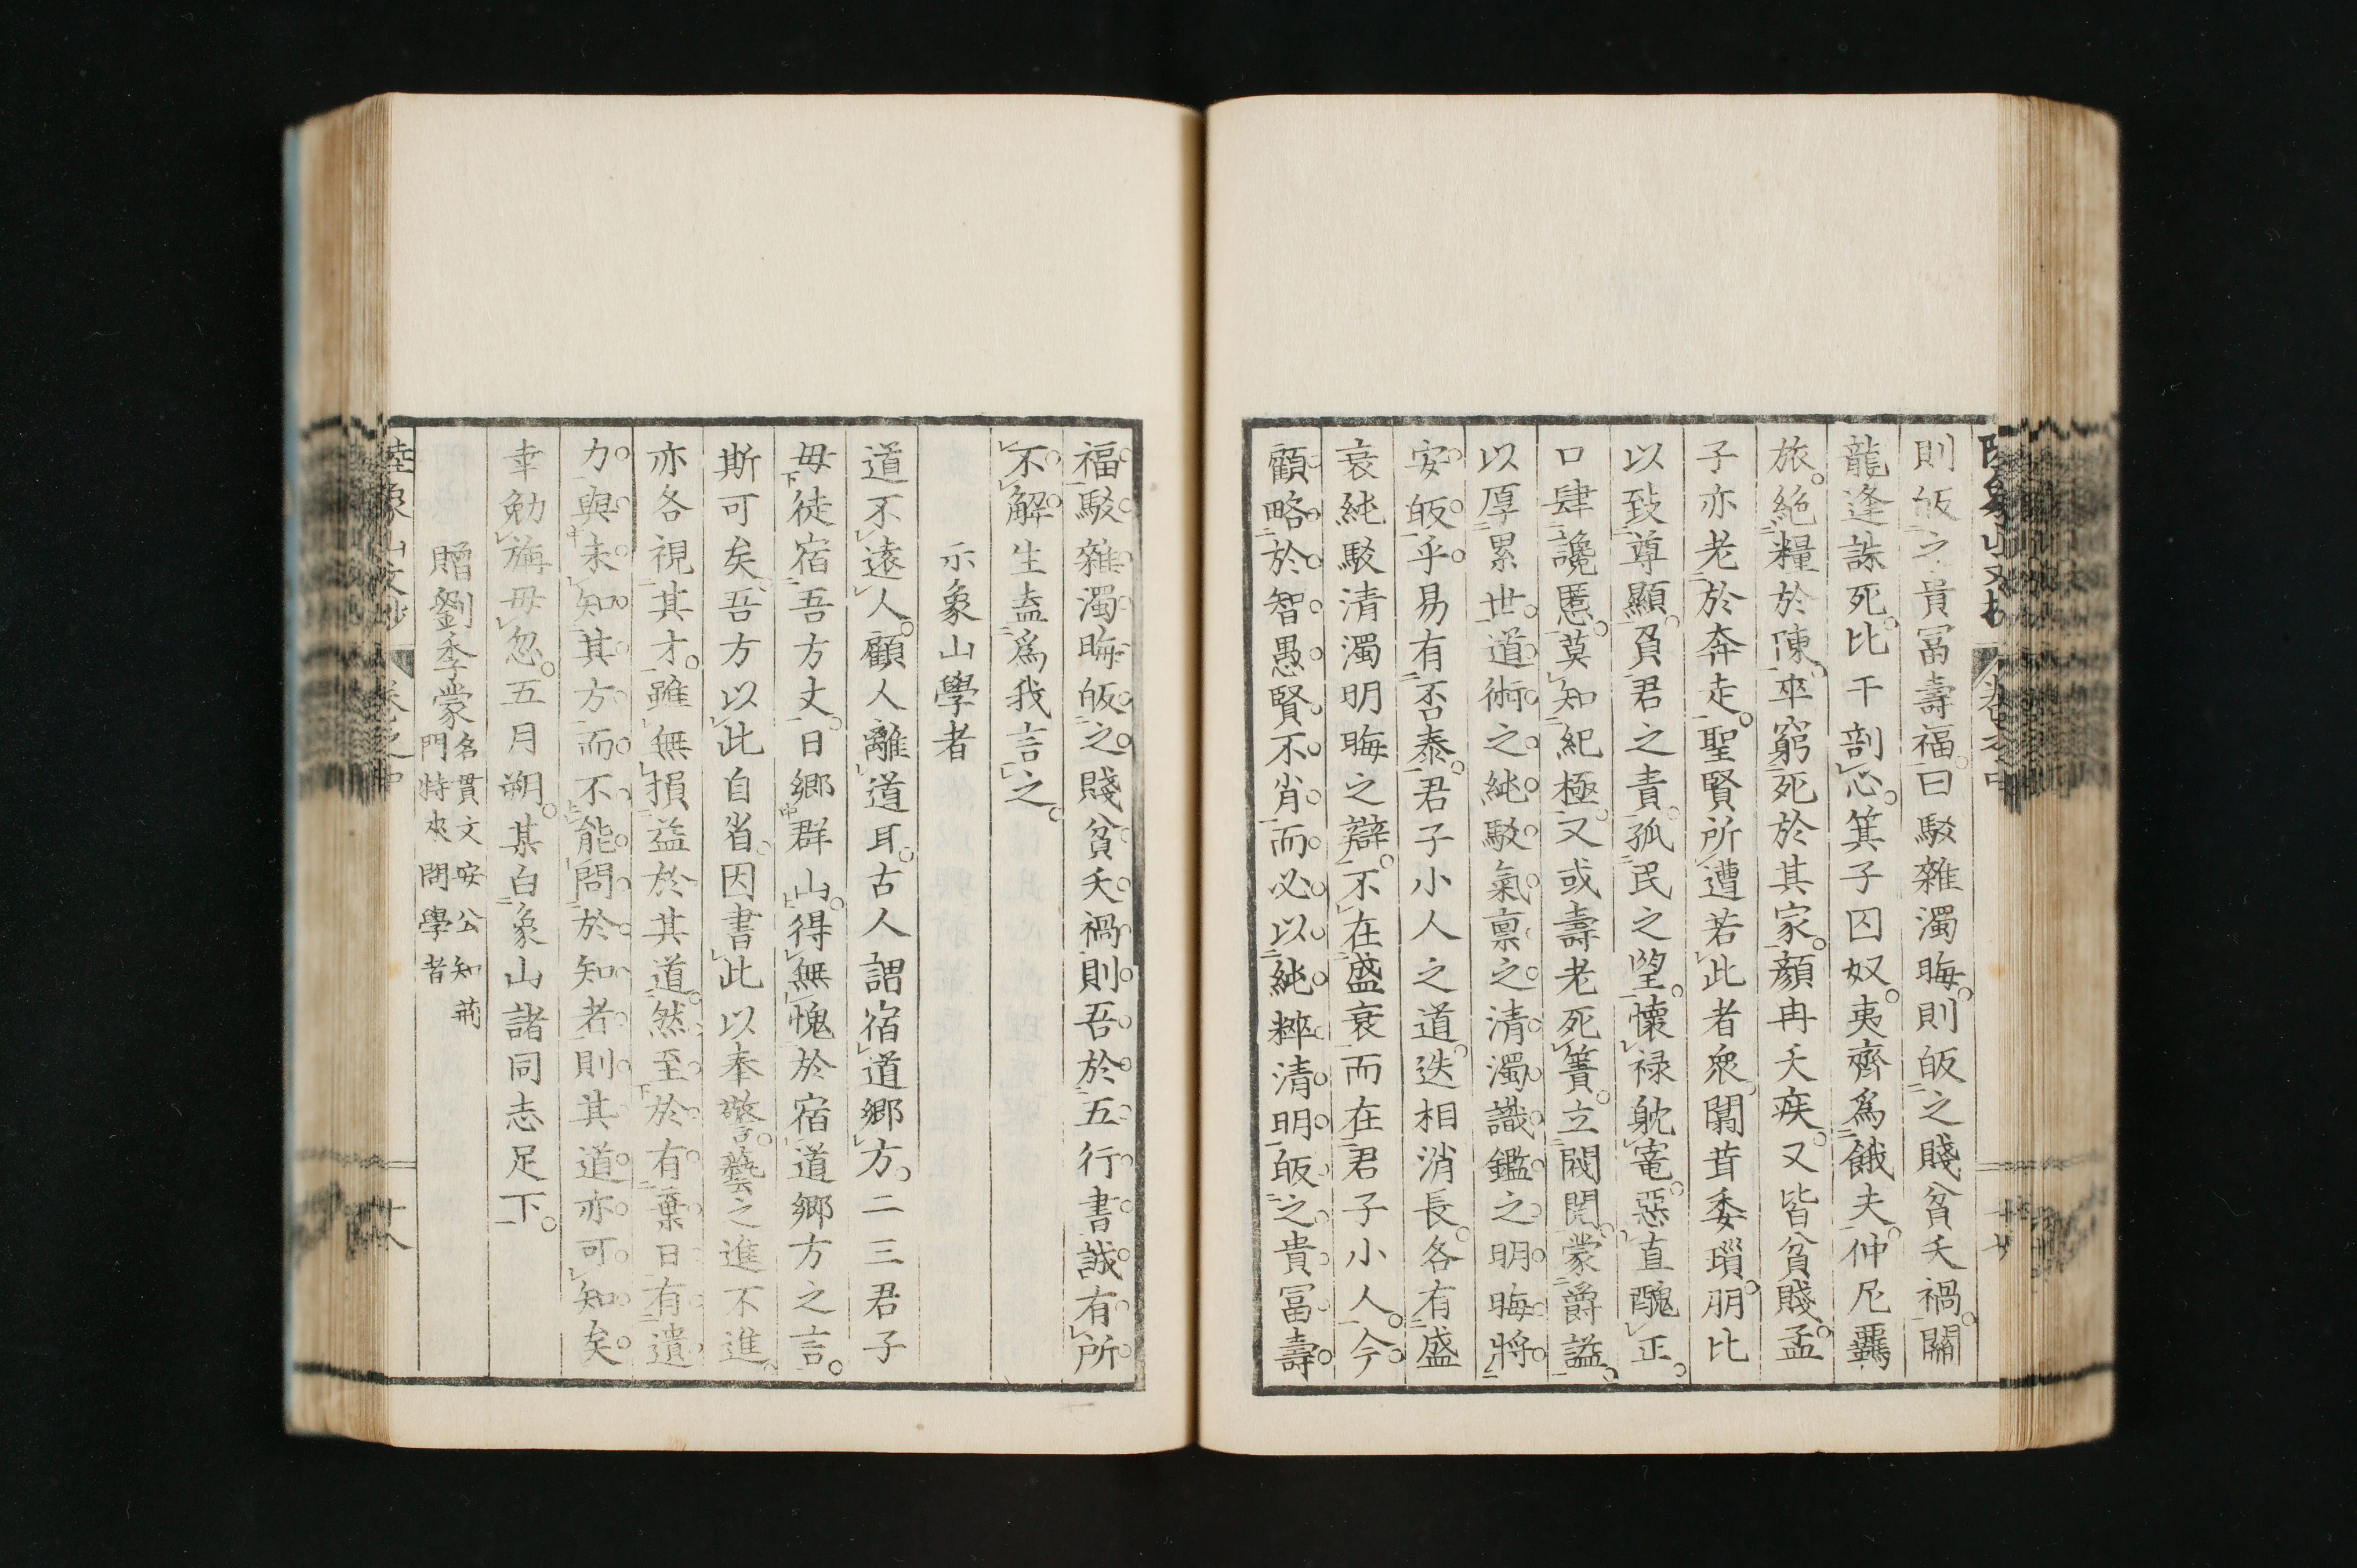 則皈之貴冨壽福曰駁雜濁晦則皈之賤貧夭禍關
龍逢誅死比干剖心箕子囚奴夷齊爲餓夫仲尼羈
旅絶糧於陳卒窮死於其家顔冉夭疾又皆貧賤孟
子亦老於奔走聖賢所遭若此者衆闒茸委瑣朋比
以致尊顯負君之責孤民之望懷禄躭寵惡直醜正
口肆讒慝莫知紀極又或壽老死簀立閥閱蒙爵謚
以厚累世道術之純駁氣禀之清濁識鑑之明晦將
安皈乎易有否泰君子小人之道迭相消長各有盛
衰純駁清濁明晦之辯不在盛衰而在君子小人今
顧略於智愚賢不肖而必以純粹清明皈之貴冨壽
福駁雜濁晦皈之賤貧夭禍則吾於五行書誠有所
不解生盍爲我言之
示象山學者
道不遠人顧人離道耳古人謂宿道郷方二三君子
毋徒宿吾方丈日郷群山得無愧於宿道郷方之言
斯可矣吾方以此自省因書此以奉警藝之進不進
亦各視其才雖無損益於其道然至於有棄日有遺
力與未知其方而不能問於知者則其道亦可知矣
幸勉旃毋忽五月朔某白象山諸同志足下
贈劉季蒙名貫文安公知荊
門特來問學者
陸象山文抄 卷之中 廿八